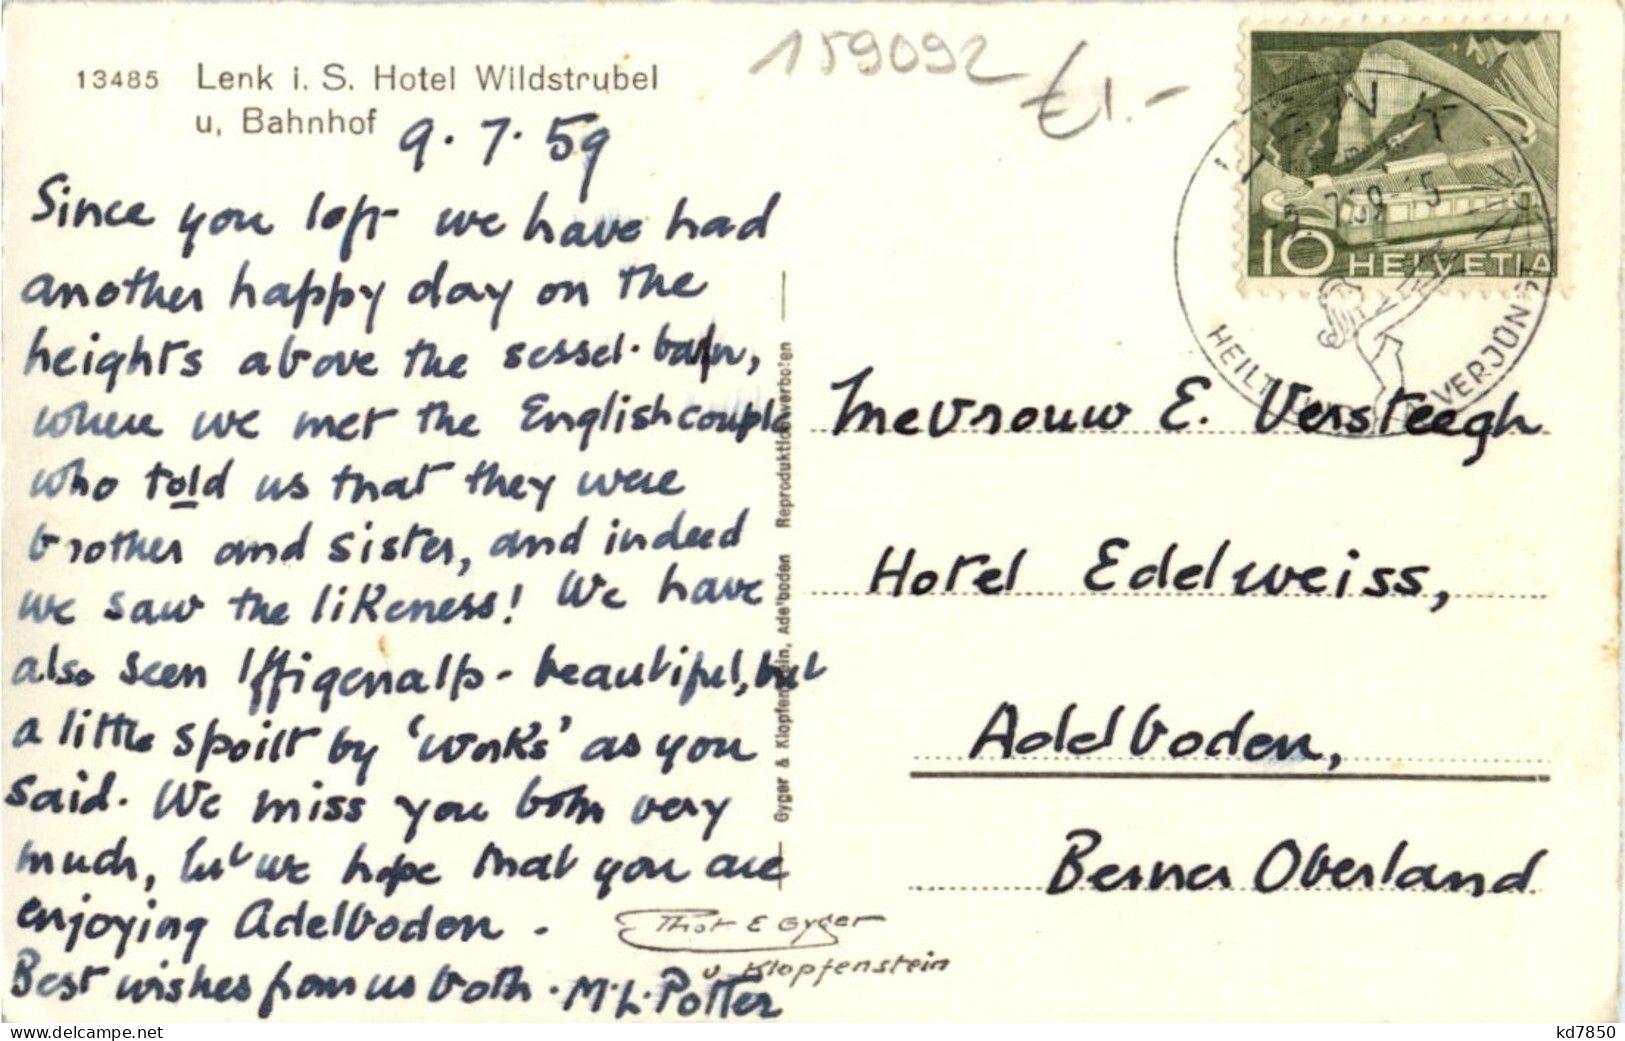 159092
€1.-
13485 Lenk i. S. Hotel Wildstrubel
u. Bahnhof
9.7.59
Since you left we have had
another happy day on the
heights above the sessel-bahn,
where we met the English couple
who told us that they were
brother and sister, and indeed
we saw the likeness! We have
also seen Iffigenalp - beautiful, but
a little spoilt by 'works' as you
said. We miss you both very
much, but we hope that you are
enjoying Adelboden.
Best wishes from us both. M. L. Potter
Phot E Gyger
u Klopfenstein
Gyger & Klopfenstein, Adelboden Reproduktion verboten
10 HELVETIA
LENK
HEILT UND VERJÜNGT
Mevrouw E. Versteegh
Hotel Edelweiss,
Adelboden,
Berner Oberland
kd7850